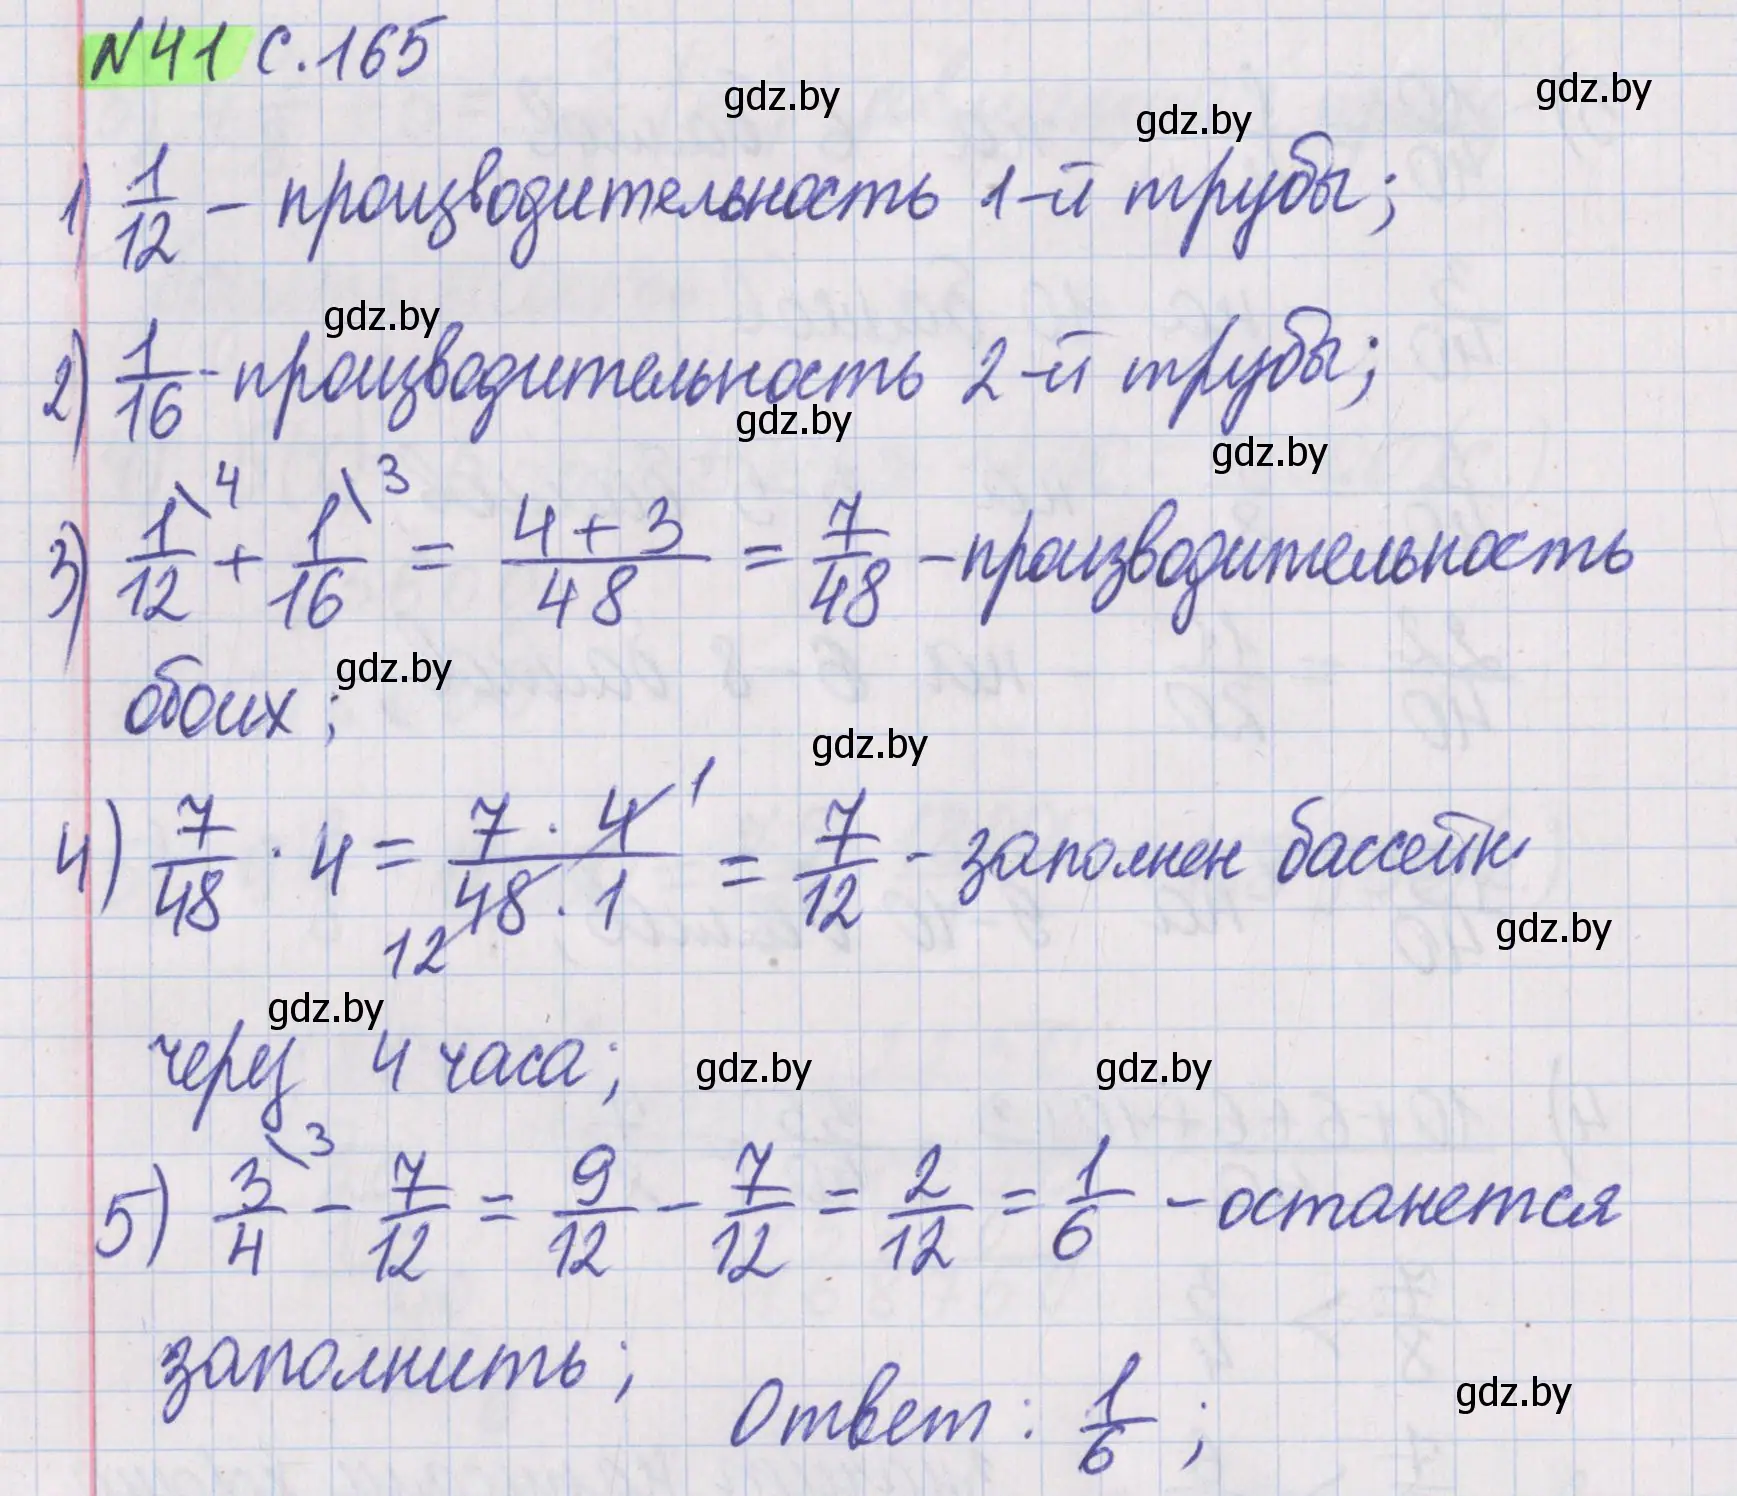 N41 с.165
gdz.by gdz.by gdz.by
1) 1/12 - производительность 1-й трубы;
gdz.by
2) 1/16 - производительность 2-й трубы;
gdz.by gdz.by
3) 1/12 \4 + 1/16 \3 = (4+3)/48 = 7/48 - производительность
обоих; gdz.by
gdz.by
4) 7/48 · 4 = (7 · 4 1)/(12 48 · 1) = 7/12 - заполнен бассейн
gdz.by
gdz.by
через 4 часа; gdz.by gdz.by
5) 3/4 \3 - 7/12 = 9/12 - 7/12 = 2/12 = 1/6 - останется
заполнить;
gdz.by
Ответ: 1/6;